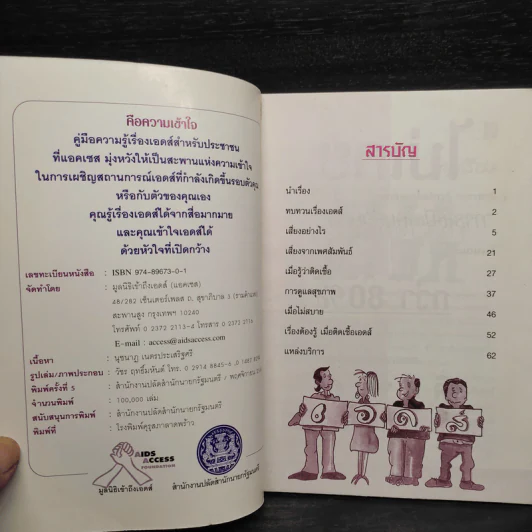 คือความเข้าใจ
คู่มือความรู้เรื่องเอดส์สำหรับประชาชน
ที่แอคเซส มุ่งหวังให้เป็นสะพานแห่งความเข้าใจ
ในการเผชิญสถานการณ์เอดส์ที่กำลังเกิดขึ้นรอบตัวคุณ
หรือกับตัวของคุณเอง
คุณรู้เรื่องเอดส์ได้จากสื่อมากมาย
และคุณเข้าใจเอดส์ได้
ด้วยหัวใจที่เปิดกว้าง
เลขทะเบียนหนังสือ : ISBN 974-89673-0-1
จัดทำโดย : มูลนิธิเข้าถึงเอดส์ (แอคเซส)
48/282 เซ็นเตอร์เพลส ถ. สุขาภิบาล 3 (รามคำแหง)
สะพานสูง กรุงเทพฯ 10240
โทรศัพท์ 0 2372 2113-4 โทรสาร 0 2372 2116
E-mail : access@aidsaccess.com
เนื้อหา : นุชนาฏ เนตรประเสริฐศรี
รูปเล่ม/ภาพประกอบ : วัชร โทร. 0 2914 8845-6
พิมพ์ครั้งที่ 5 : สำนักงานปลัดสำนักนายกรัฐมนตรี / พฤศจิกายน
จำนวนพิมพ์ : 100,000 เล่ม
สนับสนุนการพิมพ์ : สำนักงานปลัดสำนักนายกรัฐมนตรี
พิมพ์ที่ : โรงพิมพ์คุรุสภาลาดพร้าว
AIDS
ACCESS
FOUNDATION
มูลนิธิเข้าถึงเอดส์ สำนักงานปลัดสำนักนายกรัฐมนตรี
สารบัญ
นำเรื่อง 1
ทบทวนเรื่องเอดส์ 2
เสี่ยงอย่างไร 5
เสี่ยงจากเพศสัมพันธ์ 21
เมื่อรู้ว่าติดเชื้อ 27
การดูแลสุขภาพ 37
เมื่อไม่สบาย 46
เรื่องต้องรู้ เมื่อติดเชื้อเอดส์ 52
แหล่งบริการ 62
เ อ ด ส์